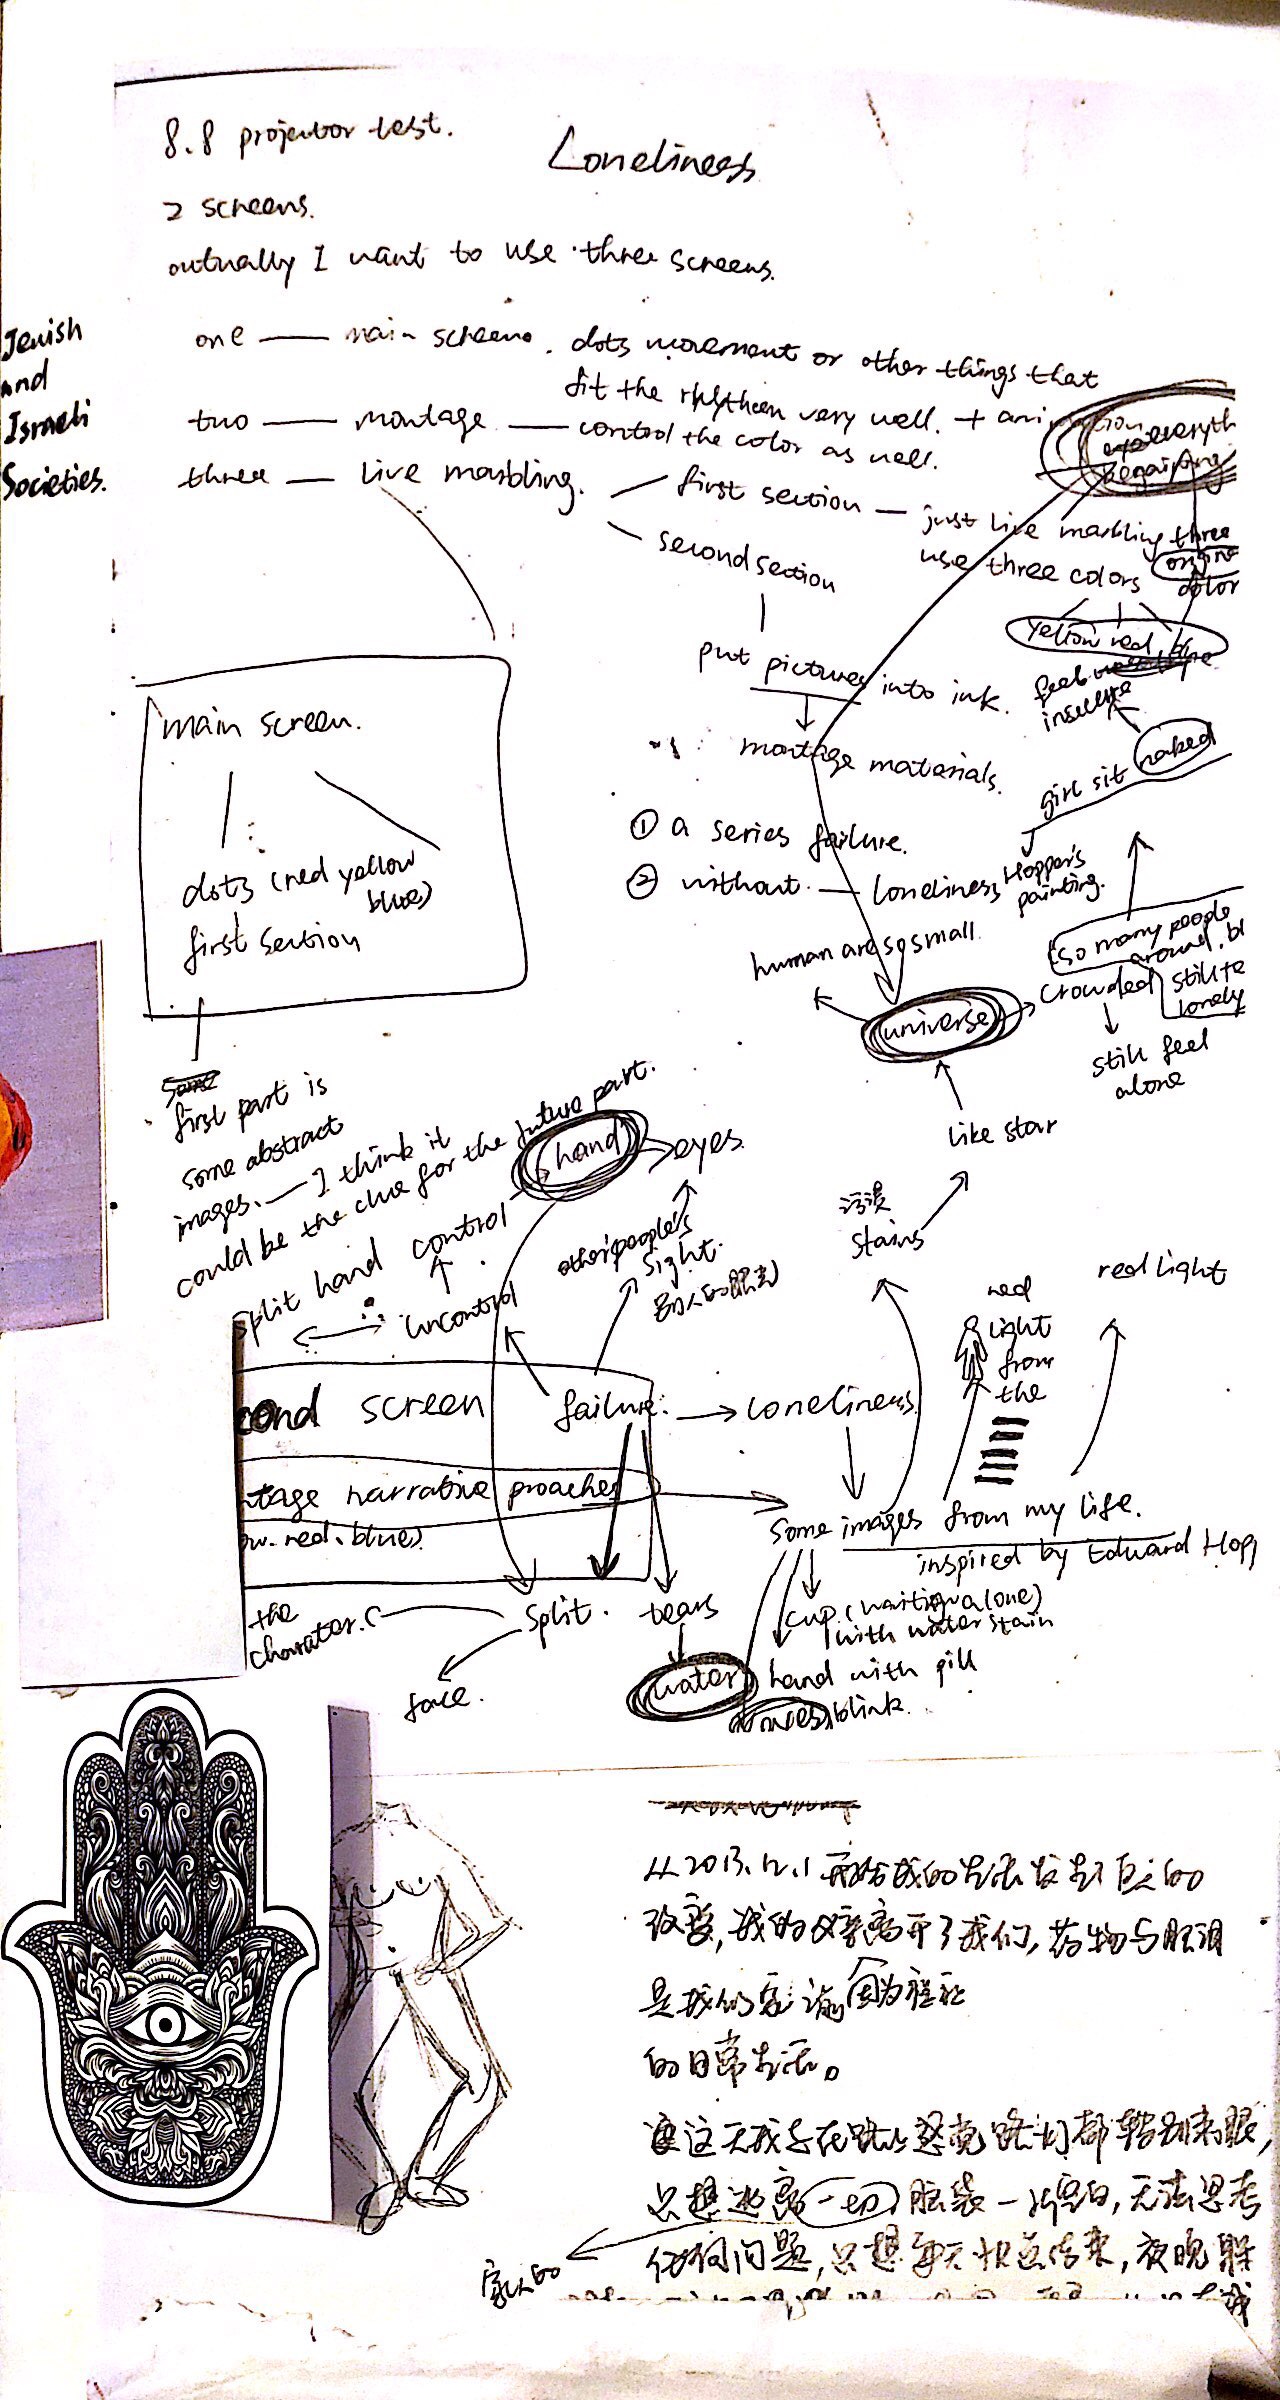 8.8 projector test.
Loneliness
2 screens.
autually I want to use three screens.
Jewish
and
Israeli
Societies.
one — main screens. dots movement or other things that
fit the rhythem very well. + ani
two — montage — control the color as well.
three — live marbling.
first section — just live marbling three
use three colors
color
yellow red
feel
insecure
second section
put pictures into ink.
montage materials.
girl sit naked
① a series failure.
② without — loneliness
Hopper's
painting.
main screen.
dots (red yellow
blue)
first section
human are so small.
universe
(so many people
around. bl
crowded
still fe
lonely
still feel
alone
like star
first part is
some abstract
images. — I think it
could be the clue for the future part.
hand
eyes
split hand control
uncontrol
other people's
sight.
别人的眼光
污渍
stains
red
light
from
the
red light
cond screen
failure.
loneliness
tage narrative proaches
ow. red. blue)
some images from my life.
inspired by Edward Hopp
the
charater.
split.
tears
cup. (waiting alone)
with water stain
face.
water
hand with pill
blink.
从2013.12.1开始我的生活发生了巨大的
改变,我的父亲离开了我们,药物与眼泪
是我们家
的日常生活。
这天我走在路上感觉路人都
只想逃离一切脑袋一片空白,无法思考
任何问题,只想每天快点结束,夜晚
家人的